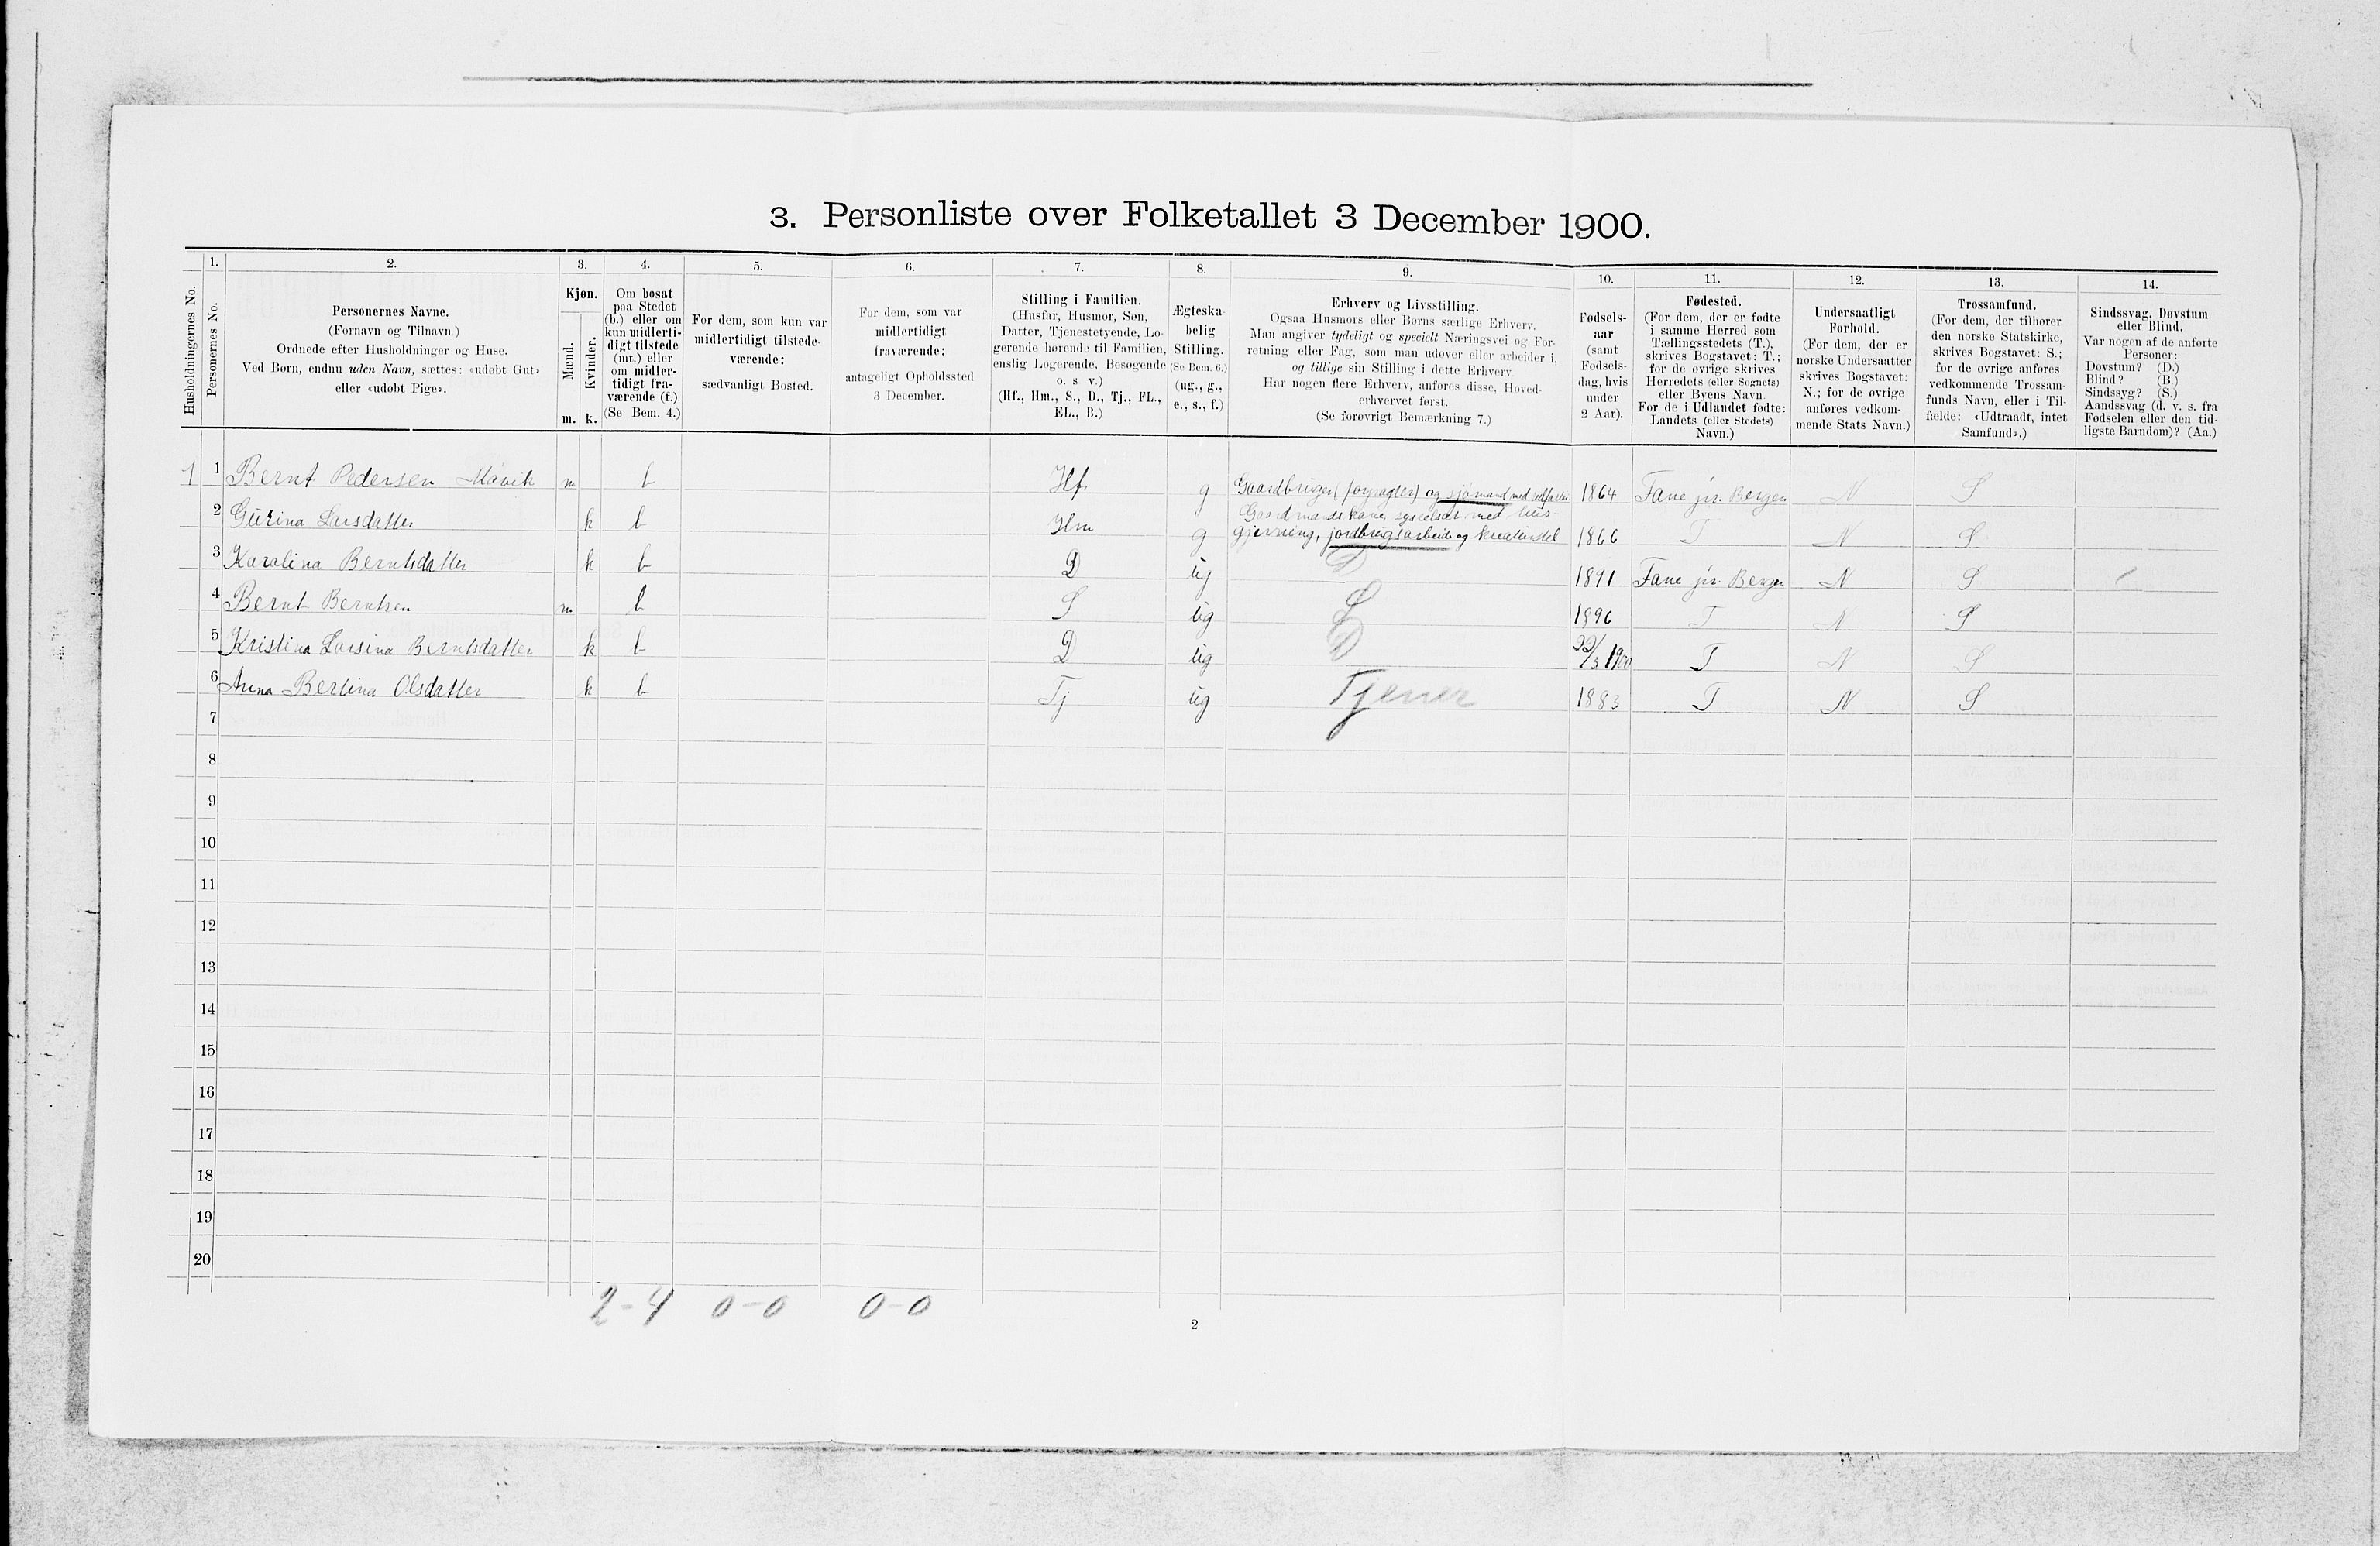 3. Personliste over Folketallet 3 December 1900.
1. 2. 3. 4. 5. 6. 7. 8. 9. 10. 11. 12. 13. 14.
Husholdningernes No.
Personernes No.
Personernes Navne.
(Fornavn og Tilnavn)
Ordnede efter Husholdninger og Huse.
Ved Børn, endnu uden Navn, sættes: «udøbt Gut»
eller «udøbt Pige».
Kjøn.
Mænd.
Kvinder.
m. k.
Om bosat
paa Stedet
(b.) eller om
kun midlerti-
digt tilstede
(mt.) eller
om midler-
tidigt fra-
værende (f.).
(Se Bem. 4.)
For dem, som kun var
midlertidigt tilstede-
værende:
sædvanligt Bosted.
For dem, som var
midlertidigt
fraværende:
antageligt Opholdssted
3 December.
Stilling i Familien.
(Husfar, Husmor, Søn,
Datter, Tjenestetyende, Lo-
gerende hørende til Familien,
enslig Logerende, Besøgende
o. s v.)
(Hf., Hm., S., D., Tj., FL.,
EL., B.)
Ægteska-
belig
Stilling.
(Se Bem. 6.)
(ug., g.,
e., s., f.)
Erhverv og Livsstilling.
Ogsaa Husmors eller Børns særlige Erhverv.
Man angiver tydeligt og specielt Næringsvei og For-
retning eller Fag, som man udøver eller arbeider i,
og tillige sin Stilling i dette Erhverv.
Har nogen flere Erhverv, anføres disse, Hoved-
erhvervet først.
(Se forøvrigt Bemærkning 7.)
Fødsels-
aar
(samt
Fødsels-
dag, hvis
under
2 Aar).
Fødested.
(For dem, der er fødte
i samme Herred som
Tællingsstedets (T.),
skrives Bogstavet: T.;
for de øvrige skrives
Herredets (eller Sognets)
eller Byens Navn.
For de i Udlandet fødte:
Landets (eller Stedets)
Navn.)
Undersaatligt
Forhold.
(For dem, der er
norske Undersaatter
skrives Bogstavet:
N.; for de øvrige
anføres vedkom-
mende Stats Navn.)
Trossamfund.
(For dem, der tilhører
den norske Statskirke,
skrives Bogstavet: S.;
for de øvrige anføres
vedkommende Trossam-
funds Navn, eller i Til-
fælde: «Udtraadt, intet
Samfund».)
Sindssvag, Døvstum
eller Blind.
Var nogen af de anførte
Personer:
Døvstum? (D.)
Blind? (B.)
Sindssyg? (S.)
Aandssvag (d. v. s. fra
Fødselen eller den tid-
ligste Barndom)? (Aa.)
1 1 Bernt Pedersen Møvik m b Hf g Gaardbruger (forpagter) og sjømand med 1864 Fane pr. Bergen N S
2 Gurina Larsdatter k b Hm g Gaardmandskone, sysselsat med hus-
gjerning, jordbrugsarbeide og kreaturstel 1866 T N S
3 Karolina Berntsdatter k b D ug D 1891 Fane pr. Bergen N S
4 Bernt Berntsen m b S ug S 1896 T N S
5 Kristina Larsina Berntsdatter k b D ug D 22/3 1900 T N S
6 Anna Bertina Olsdatter k b Tj ug Tjener 1883 T N S
7
8
9
10
11
12
13
14
15
16
17
18
19
20
2-4 0-0 0-0
2